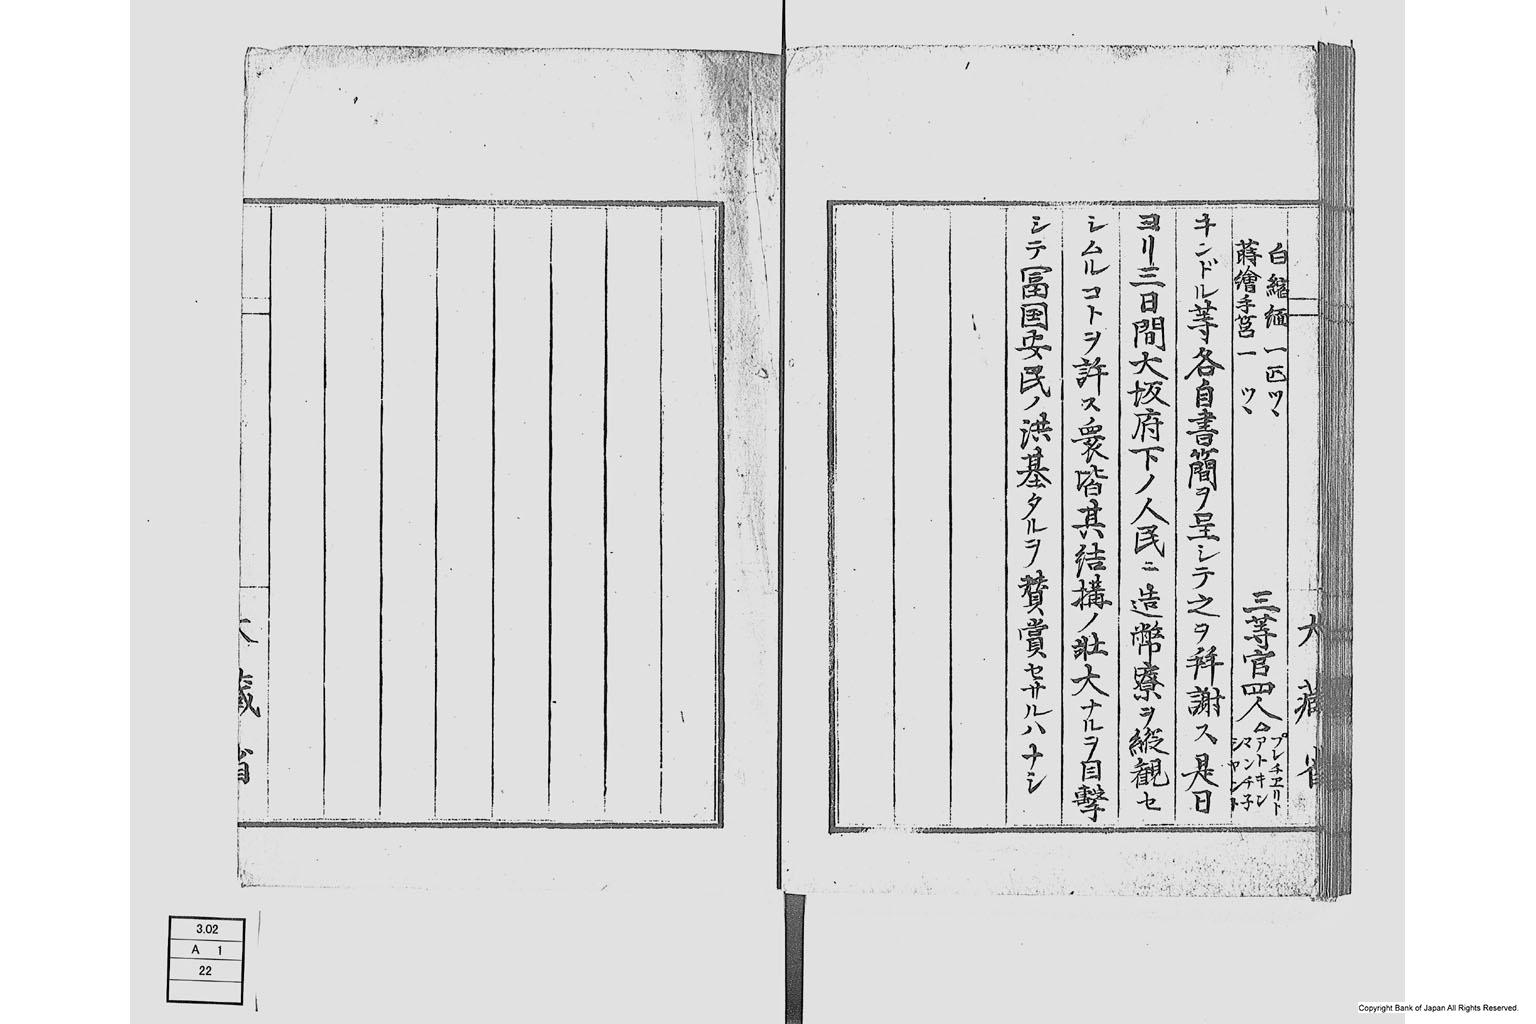 大藏省
白縮緬一匹ツヽ
蒔繪手筥一ツヽ
三等官四人
プレチヱリト
アトキン
マンチ子
シヤント
キンドル等各自書簡ヲ呈シテ之ヲ拜謝ス是日
ヨリ三日間大坂府下ノ人民ニ造幣寮ヲ縦観セ
シムルコトヲ許ス衆皆其結構ノ壯大ナルヲ目撃
シテ冨国安民ノ洪基タルヲ賛賞セサルハナシ
大藏省
3.02
A 1
22
Copyright Bank of Japan All Rights Reserved.